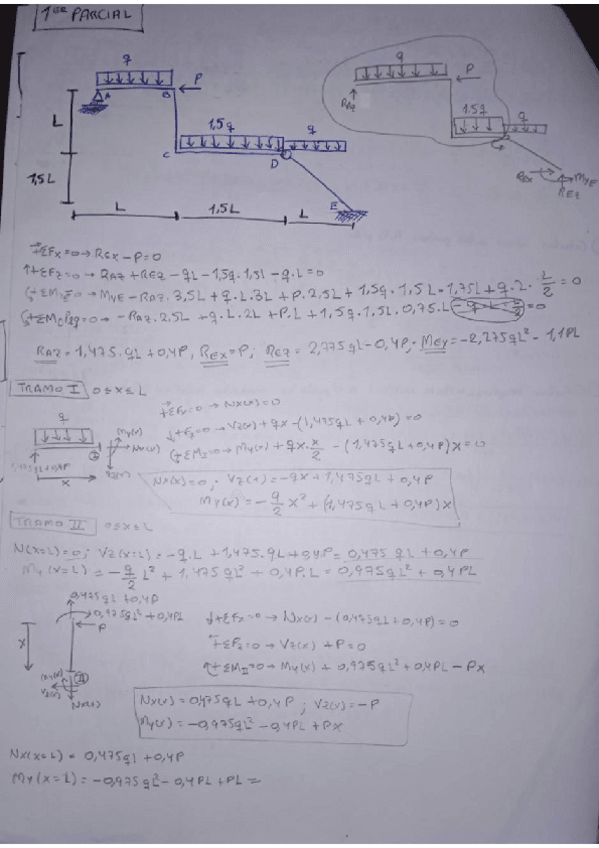 1ER PARCIAL
q
A
B
P
L
1,5q
q
C
D
1,5L
E
L
1,5L
L
q
P
RAZ
1,5q
q
MyE
REZ
→+ΣFx=0→ REX-P=0
↑+ΣFz=0→ RAZ+REZ-qL-1,5q.1,5L-q.L=0
ΣME=0→ MYE-RAZ.3,5L+q.L.3L+P.2,5L+1,5q.1,5L.1,75L+q.L.L/2=0
-RAZ.2,5L+q.L.2L+P.L+1,5q.1,5L.0,75L=0
RAZ=1,475.qL+0,4P, REX=P; REZ=2,775qL-0,4P; MEY=-2,275qL²-1,1PL
TRAMO I 0≤x≤L
→+ΣFx=0→ Nx(x)=0
q
↓+Fz=0→ Vz(x)+qx-(1,475qL+0,4P)=0
My(x)
Nx(x)
ΣMI=0→ My(x)+qx.x/2-(1,475qL+0,4P)x=0
1,475qL+0,4P
x
Vz(x)
Nx(x)=0; Vz(x)=-qx+1,475qL+0,4P
My(x)=-q/2 x²+(1,475qL+0,4P)x
TRAMO II 0≤x≤L
N(x=L)=0; Vz(x=L)=-q.L+1,475.qL+0,4P=0,475qL+0,4P
My(x=L)=-q/2 L²+1,475qL²+0,4P.L=0,975qL²+0,4PL
0,475qL+0,4P
0,975qL²+0,4PL
P
↓+ΣFx=0→ Nx(x)-(0,475qL+0,4P)=0
x
+ΣFz=0→ Vz(x)+P=0
ΣMII=0→ My(x)+0,975qL²+0,4PL-Px
My(x)
II
Vz(x)
Nx(x)
Nx(x)=0,475qL+0,4P; Vz(x)=-P
My(x)=-0,975qL²-0,4PL+Px
Nx(x=L)=0,475qL+0,4P
My(x=L)=-0,975qL²-0,4PL+PL=